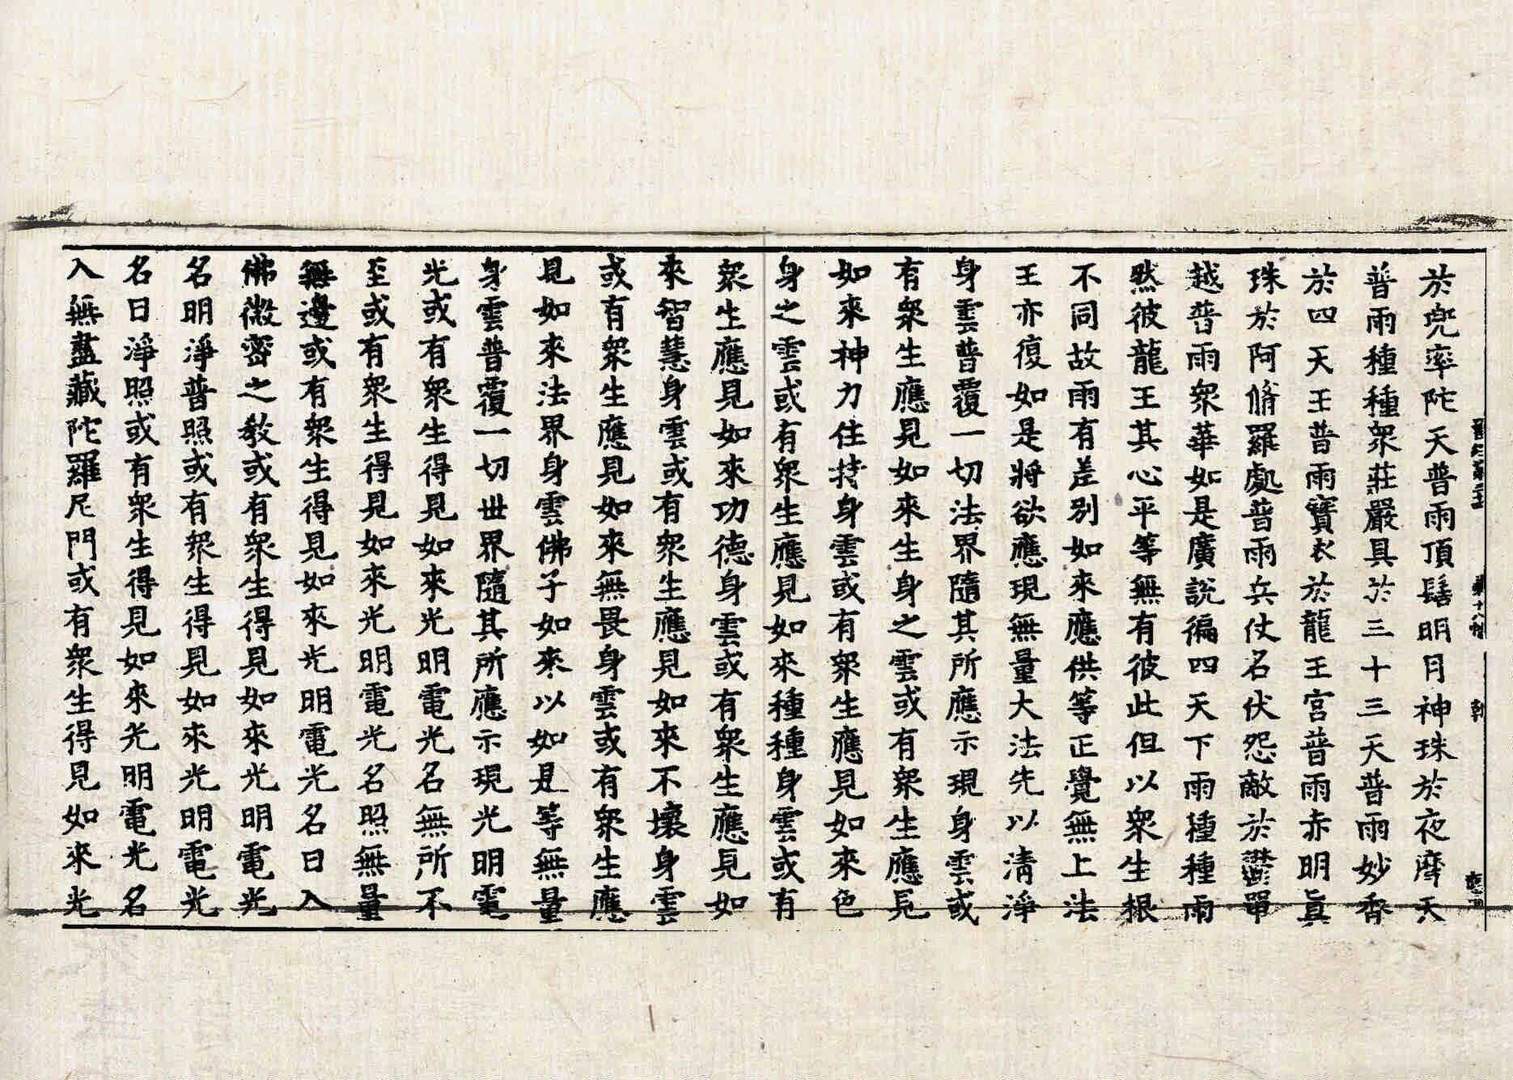 於兜率陀天普雨頂髻明月神珠於夜摩天
普雨種種衆莊嚴具於三十三天普雨妙香
於四天王普雨寶衣於龍王宮普雨赤明真
珠於阿脩羅處普雨兵仗名伏怨敵於鬱單
越普雨衆華如是廣說徧四天下雨種種雨
然彼龍王其心平等無有彼此但以衆生根
不同故雨有差別如來應供等正覺無上法
王亦復如是將欲應現無量大法先以清淨
身雲普覆一切法界隨其所應示現身雲或
有衆生應見如來生身之雲或有衆生應見
如來神力住持身雲或有衆生應見如來色
身之雲或有衆生應見如來種種身雲或有
衆生應見如來功德身雲或有衆生應見如
來智慧身雲或有衆生應見如來不壞身雲
或有衆生應見如來無畏身雲或有衆生應
見如來法界身雲佛子如來以如是等無量
身雲普覆一切世界隨其所應示現光明電
光或有衆生得見如來光明電光名無所不
至或有衆生得見如來光明電光名照無量
無邊或有衆生得見如來光明電光名曰入
佛微密之教或有衆生得見如來光明電光
名明淨普照或有衆生得見如來光明電光
名曰淨照或有衆生得見如來光明電光名
入無盡藏陀羅尼門或有衆生得見如來光